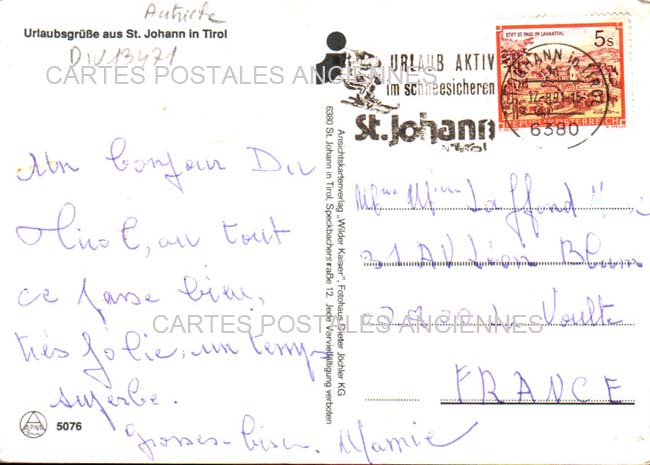 Autriche
Urlaubsgrüße aus St. Johann in Tirol
DIV13471
CARTES POSTALES ANCIENNES
Un bonjour Du
Tirol, au tout
ce passe bien,
très jolie, un temps
superbe.
Grosses bises. Mamie
5076
Ansichtskartenverlag „Wilder Kaiser", Fotohaus Dieter Jöchler KG
6380 St. Johann in Tirol, Speckbacherstraße 12. Jede Vervielfältigung verboten
URLAUB AKTIV
im schneesicheren
St. Johann
in Tirol
STIFT ST. PAUL IM LAVANTTAL
5s
REPUBLIK ÖSTERREICH
ST. JOHANN in TIROL
6380
Laffond
31 AV Léon Blum
La Voulte
CARTES POSTALES ANCIENNES
FRANCE